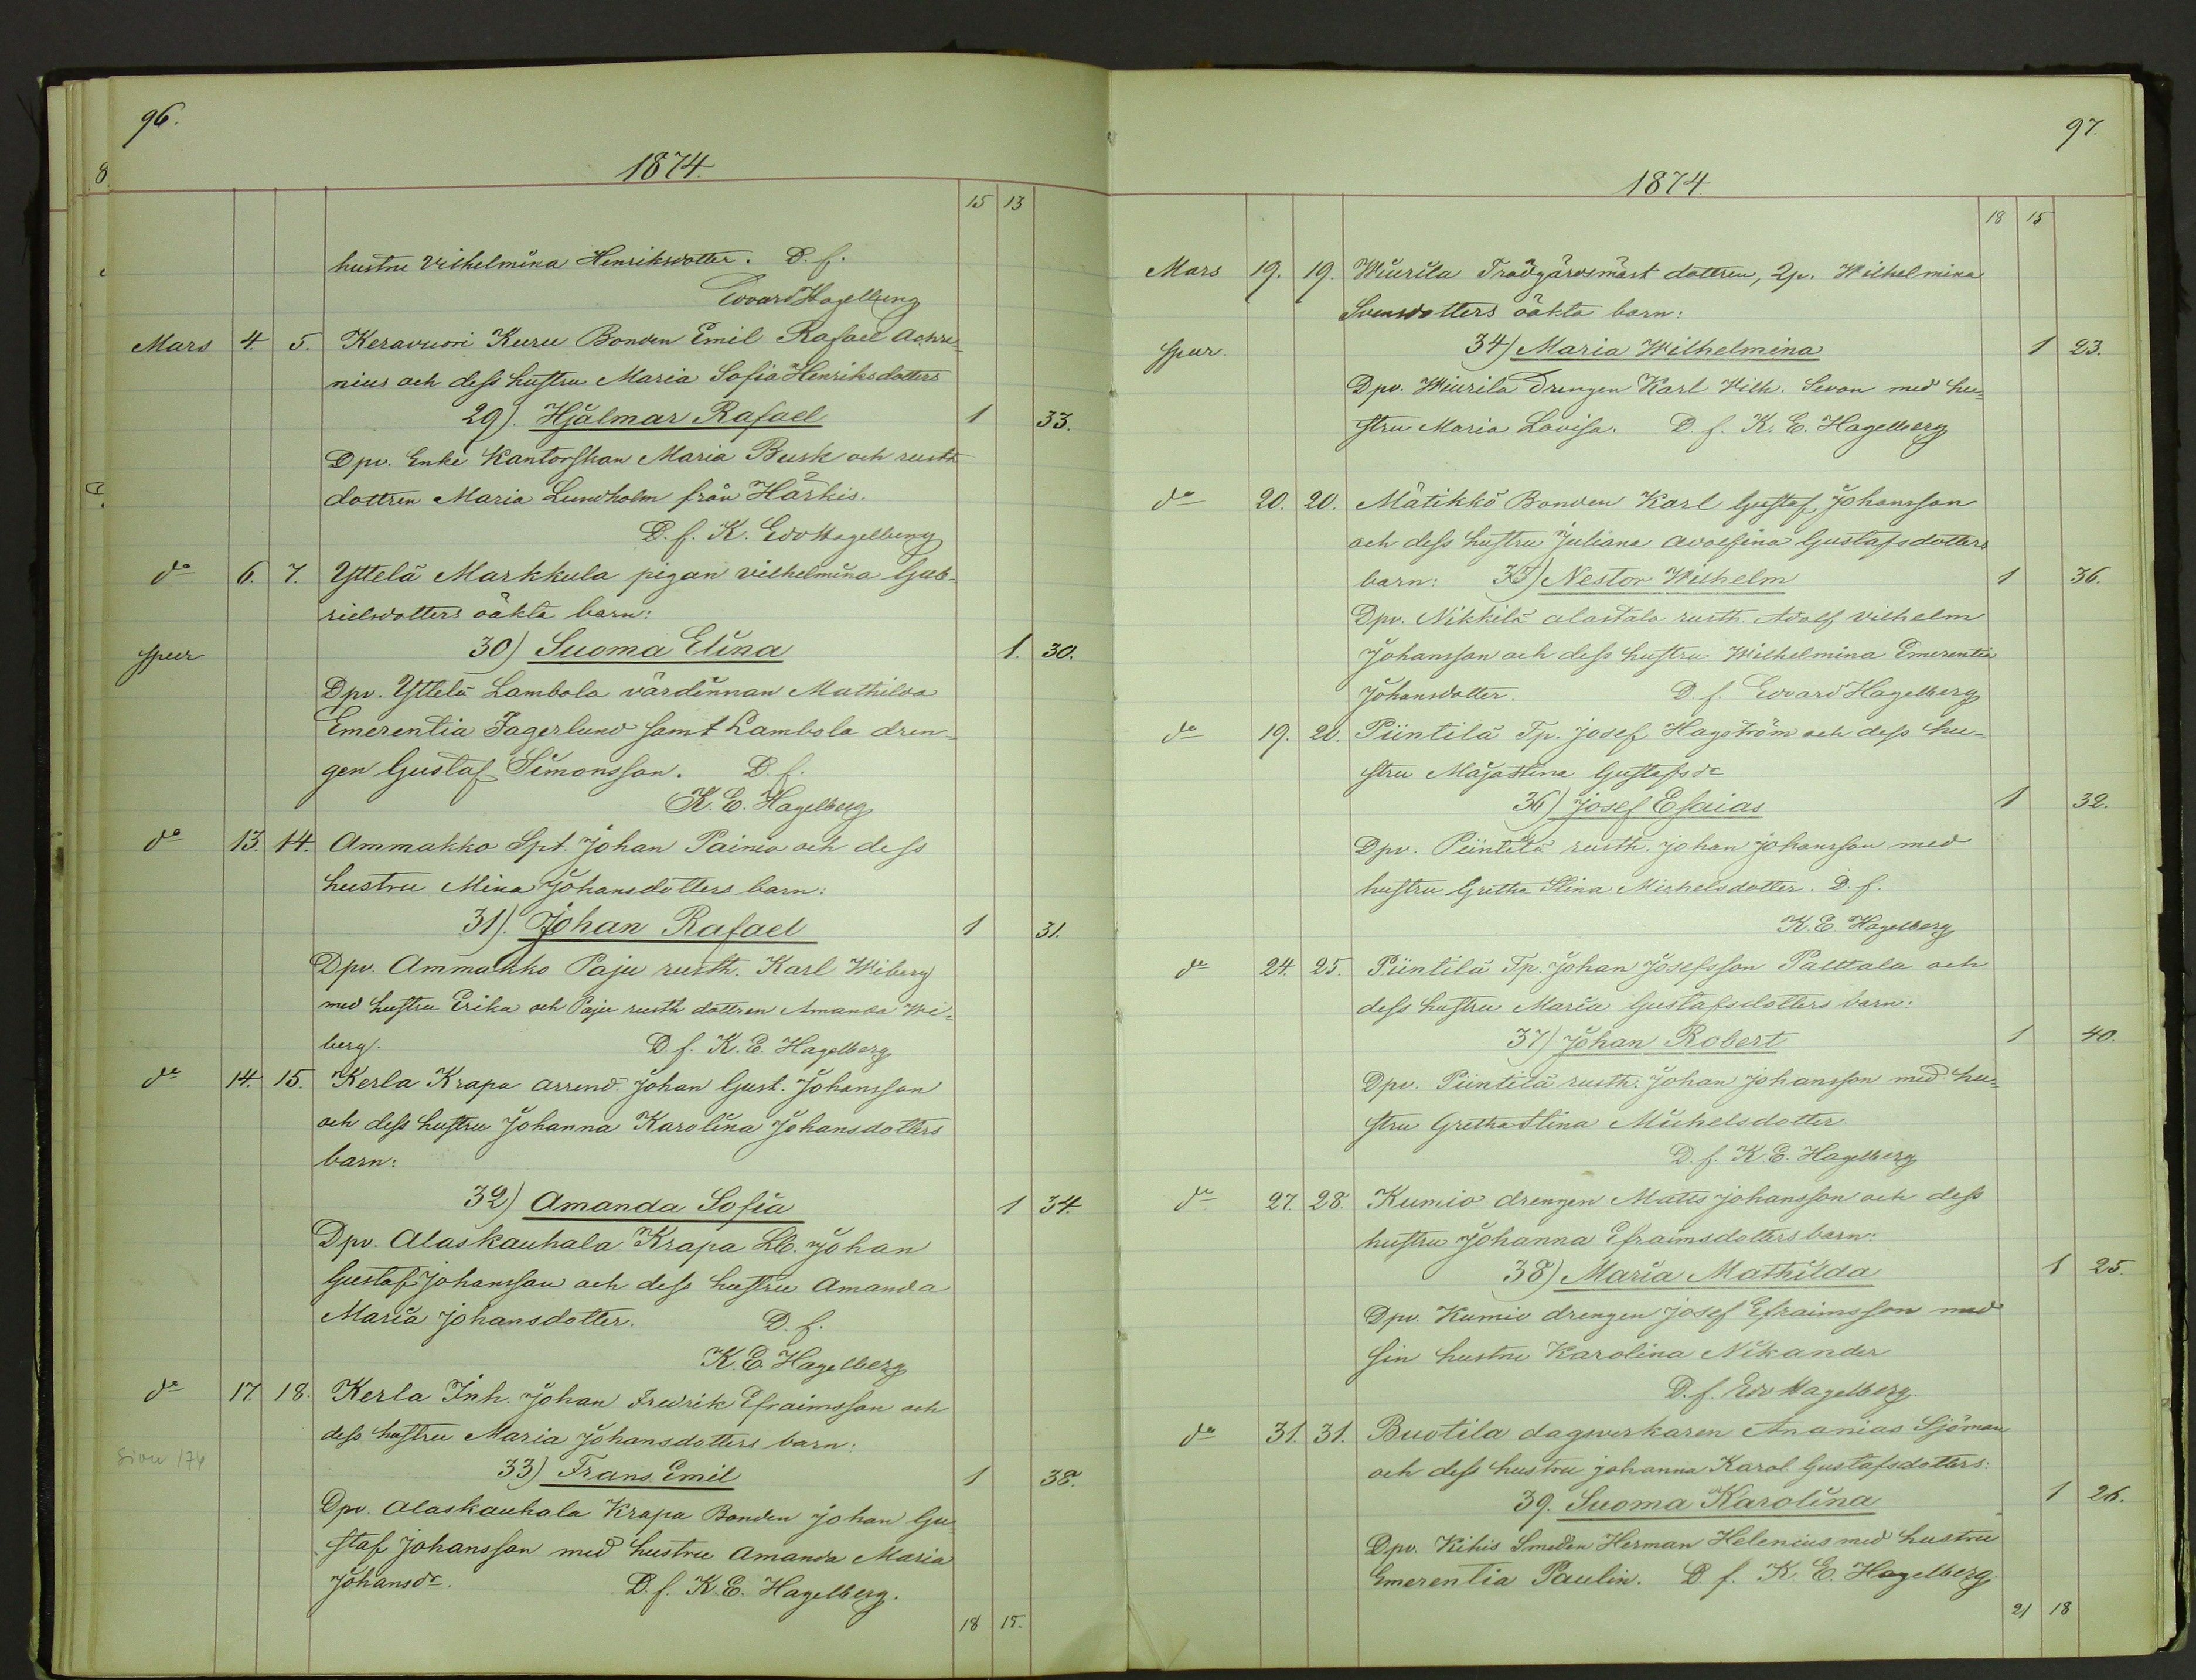 96.
1874.
15 13
hustru Vilhelmina Henriksdotter. D. f.
Edvard Hagelberg
Mars 4. 5. Keravuori Kuru Bonden Emil Rafael Achre-
nius och dess hustru Maria Sofia Henriksdotters
29). Hjalmar Rafael 1 33.
Dpv. Enke Kantorskan Maria Busk och rusth
dottren Maria Lundholm från Härkis.
D. f. K. Edv Hagelberg
do 6. 7. Yttelä Markkula pigan Vilhelmina Gab-
rielsdotters oäkta barn:
spur 30) Suoma Elina 1. 30.
Dpv. Yttelä Lambola värdinnan Mathilda
Emerentia Fagerlund samt Lambola dren-
gen Gustaf Simonsson. D. f.
K. E. Hagelberg
do 13. 14. Ammakko Spt. Johan Painio och dess
hustru Mina Johansdotters barn:
31). Johan Rafael 1 31.
Dpv. Ammakko Paju rusth. Karl Wiberg
med hustru Erika och Paju rusth dottren Amanda Wi-
berg. D. f. K. E. Hagelberg
do 14. 15. Kerla Krapa arrend. Johan Gust. Johansson
och dess hustru Johanna Karolina Johansdotters
barn:
32) Amanda Sofia 1 34.
Dpv. Alaskauhala Krapa Lb. Johan
Gustaf Johansson och dess hustru Amanda
Maria Johansdotter. D. f.
K. E. Hagelberg
do 17. 18. Kerla Inh. Johan Fredrik Efraimsson och
dess hustru Maria Johansdotters barn:
Sivu 174
33) Frans Emil 1 38.
Dpv. Alaskauhala Krapa Bonden Johan Gu-
staf Johansson med hustru Amanda Maria
Johansdr. D. f. K. E. Hagelberg.
18 15.
97.
1874
18 15
Mars 19. 19. Wiurila Trädgårdsmäst dottren, Qp. Wilhelmina
Svensdotters oäkta barn:
spur. 34) Maria Wilhelmina 1 23.
Dpv. Wiurila Drengen Karl Wilh. Sevon med hu-
stru Maria Lovisa. D. f. K. E. Hagelberg
do 20. 20. Mätikkö Bonden Karl Gustaf Johansson
och dess hustru Juliana Adolfina Gustafsdotters
barn: 35) Nestor Wilhelm 1 36.
Dpv. Nikkilä alastalo rusth. Adolf Vilhelm
Johansson och dess hustru Wilhelmina Emerentia
Johansdotter. D. f. Edvard Hagelberg
do 19. 20. Piintilä Tp. Josef Hagström och dess hu-
stru Majastina Gustafsdr
36) Josef Esaias 1 32.
Dpv. Piintilä rusth. Johan Johansson med
hustru Gretha Stina Michelsdotter. D. f.
K. E. Hagelberg
do 24. 25. Piintilä Tp. Johan Josefsson Palttala och
dess hustru Maria Gustafsdotters barn:
37) Johan Robert 1 40.
Dpv. Piintilä rusth. Johan Johansson med hu-
stru Gretha Stina Michelsdotter.
D. f. K. E. Hagelberg
do 27. 28. Kumio drengen Matts Johansson och dess
hustru Johanna Efraimsdotters barn:
38) Maria Mathilda 1 25.
Dpv. Kumio drengen Josef Efraimsson med
sin hustru Karolina Nikander
D. f. Edv Hagelberg.
do 31. 31. Buotila dagsverkaren Ananias Sjöman
och dess hustru Johanna Karol. Gustafsdotters:
39. Suoma Karolina 1 26.
Dpv. Kihis Smeden Herman Helenius med hustru
Emerentia Paulin. D. f. K. E. Hagelberg.
21 18